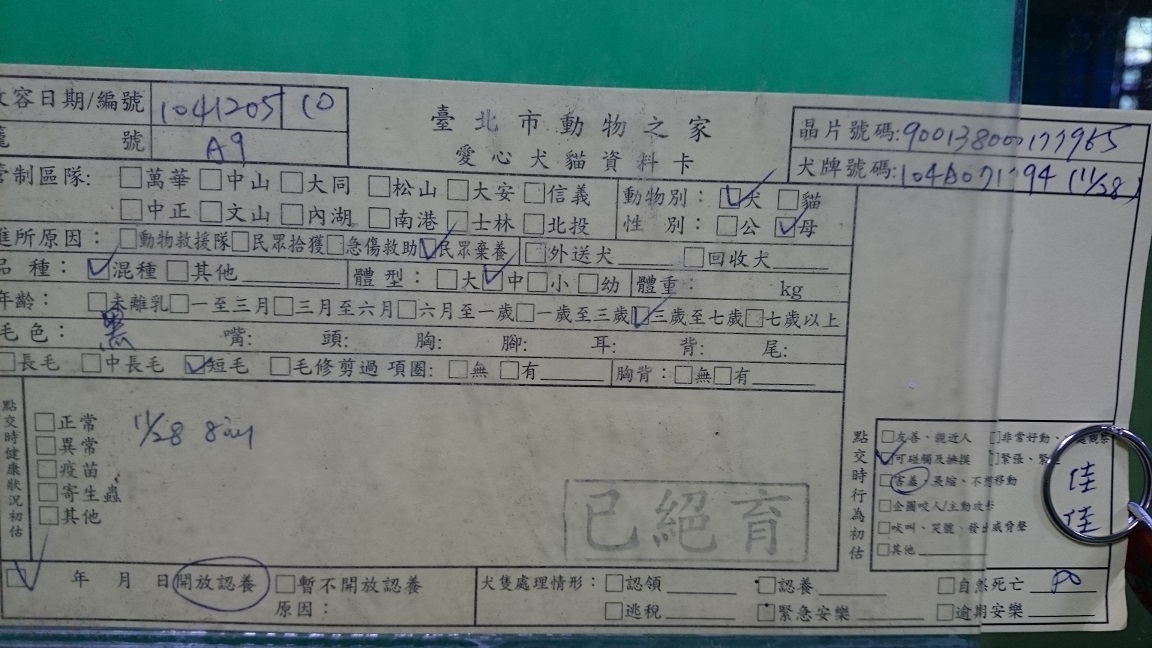 收容日期/編號 1041205 10
號 A9
臺北市動物之家
愛心犬貓資料卡
晶片號碼:900138000177965
犬牌號碼:104 (11/28)
管制區隊: □萬華□中山□大同□松山□大安□信義
□中正□文山□內湖□南港□士林□北投
動物別: ☑犬 □貓
性別:□公 ☑母
進所原因: □動物救援隊□民眾拾獲□急傷救助☑民眾棄養□外送犬 □回收犬
品種: ☑混種□其他
體型:□大☑中□小□幼 體重: kg
年齡: □未離乳□一至三月□三月至六月□六月至一歲□一歲至三歲☑三歲至七歲□七歲以上
毛色: 黑 嘴: 頭: 胸: 腳: 耳: 背: 尾:
□長毛 □中長毛 ☑短毛 □毛修剪過 項圈: □無 □有 胸背:□無□有
點交時健康狀況初估
□正常
□異常
□疫苗
□寄生蟲
□其他
11/28
已絕育
點交時行為初估
□友善、親近人 □非常好動、
☑可碰觸及撫摸 □緊張、緊
□害羞、畏縮、不想移動
□企圖咬人/主動攻擊
□吠叫、哭號、發出威脅聲
□其他
佳
佳
☑ 年 月 日開放認養 □暫不開放認養
原因:
犬隻處理情形: □認領 □認養 □自然死亡
□逃脫 □緊急安樂 □逾期安樂